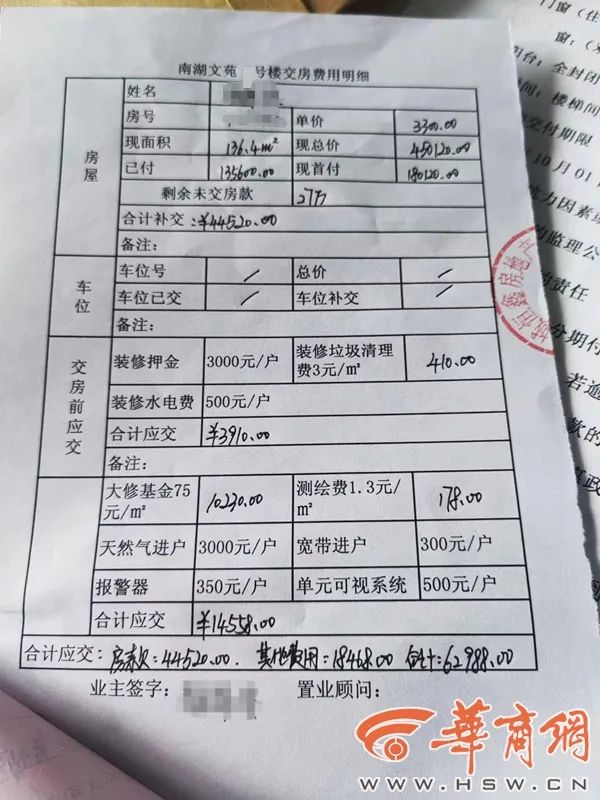 南湖文苑 号楼交房费用明细
房屋
姓名
房号 单价 3300.00
现面积 136.4m² 现总价 450120.00
已付 135600.00 现首付 180120.00
剩余未交房款 27万
合计补交:¥44520.00
备注:
车位
车位号 / 总价 /
车位已交 / 车位补交 /
备注:
交房前应交
装修押金 3000元/户 装修垃圾清理费3元/m² 410.00
装修水电费 500元/户
合计应交 ¥3910.00
备注:
大修基金75元/m² 10230.00 测绘费1.3元/m² 178.00
天然气进户 3000元/户 宽带进户 300元/户
报警器 350元/户 单元可视系统 500元/户
合计应交 ¥14558.00
合计应交: 房款欠:44520.00. 其他费用:18468.00 合计:62988.00
业主签字: 置业顾问:
门窗
窗:
阳台:全封闭
楼梯间
交付期限
10月01
力因素
监理公
责任
分期付
若逾
款的
華商網
WWW.HSW.CN